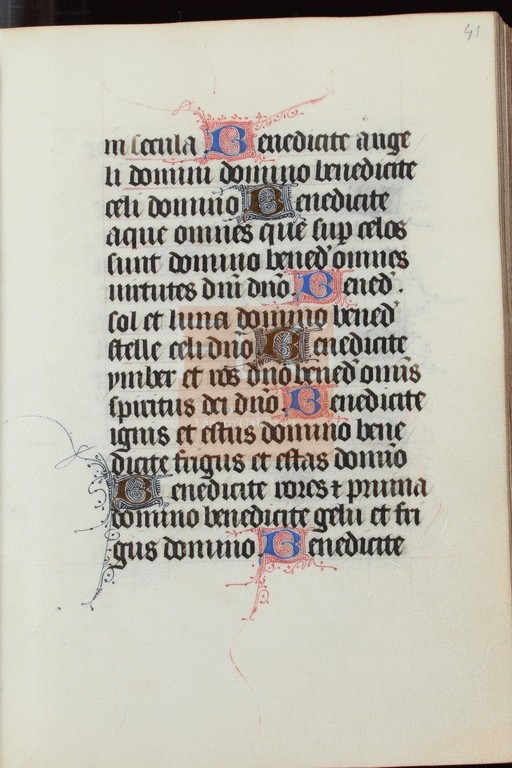 41
in secula Benedicite ange
li domini domino benedicite
celi domino Benedicite
aque omnes que sup celos
sunt domino bened omnes
uirtutes dni dno. Bened.
sol et luna domino bened
stelle celi dno Benedicite
ymber et ros dno bened omis
spiritus dei dno. Benedicite
ignis et estus domino bene
dicite frigus et estas domio
Benedicite rores ⁊ pruina
domino benedicite gelu et fri
gus domino Benedicite